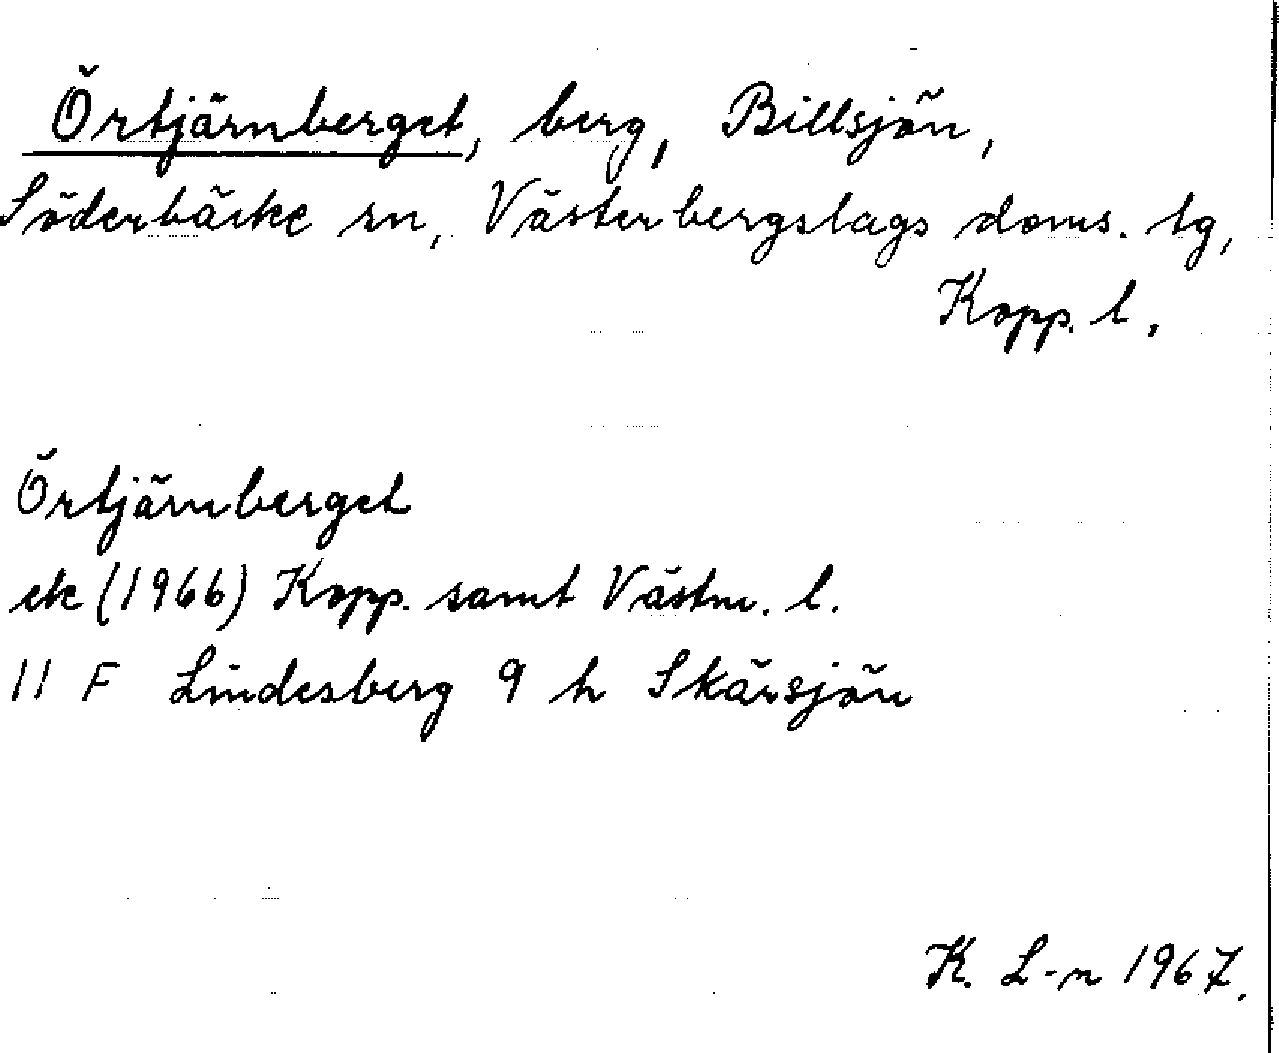 Örtjärnberget, berg, Billsjön,
Söderbärke sn, Västerbergslags doms. tg,
Kopp. l.
Örtjärnberget
ek (1966) Kopp. samt Västm. l.
11 F Lindesberg 9 h Skärsjön
K. L-n 1967.